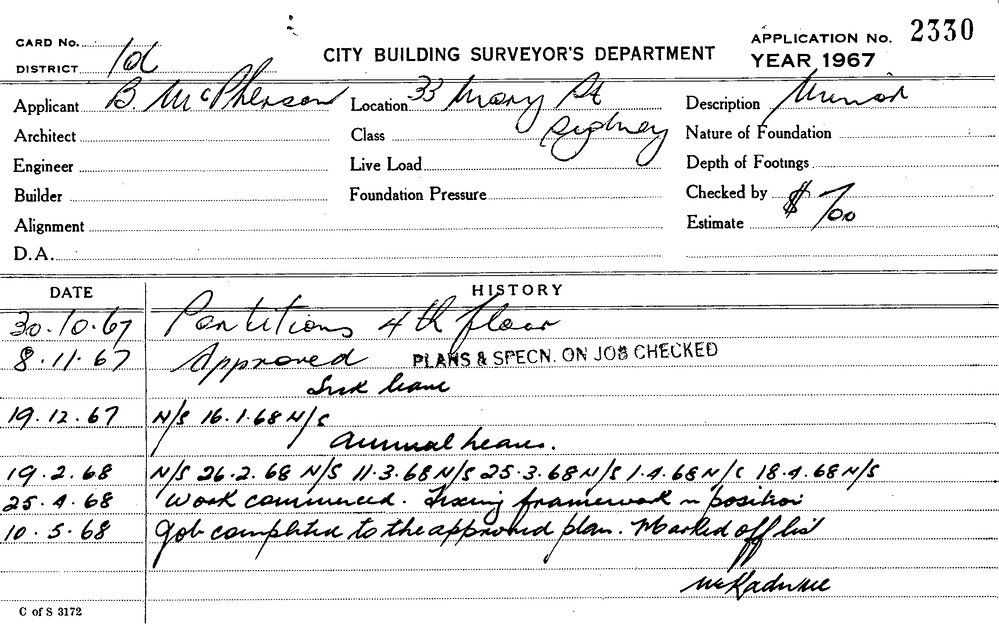 CARD No.
DISTRICT
CITY BUILDING SURVEYOR'S DEPARTMENT
APPLICATION No. 2330
YEAR 1967
Applicant B. McPherson
Location 33 Mary St
Sydney
Description Minor
Architect
Class
Nature of Foundation
Engineer
Live Load
Depth of Footings
Builder
Foundation Pressure
Checked by
Alignment
Estimate $700
D.A.
DATE HISTORY
30.10.67 Partitions 4th floor
8.11.67 Approved PLANS & SPECN. ON JOB CHECKED
Sick leave
19.12.67 N/S 16.1.68 N/S
Annual leave.
19.2.68 N/S 26.2.68 N/S 11.3.68 N/S 25.3.68 N/S 1.4.68 N/S 18.4.68 N/S
25.4.68 Work commenced. Fixing framework in position
10.5.68 Job completed to the approved plan. Marked off list
C of S 3172